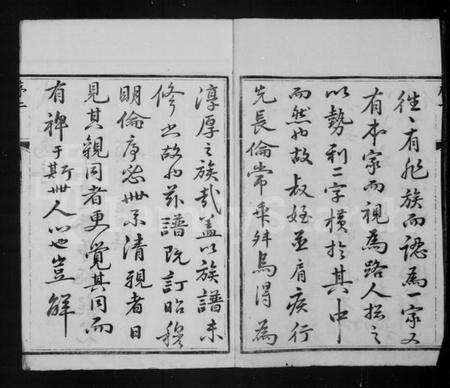 徃〻有非族而認為一家又
有本家而視為路人揔之
以勢利二字橫扵其中
而然也故叔姪並肩疾行
先長倫常乖舛烏得為
淳厚之族哉盖以族譜未
修之故也茲譜既訂昭穆
明倫序㤗世系清親者日
見其親同者更覺其同而
有裨于斯世人心也豈鮮